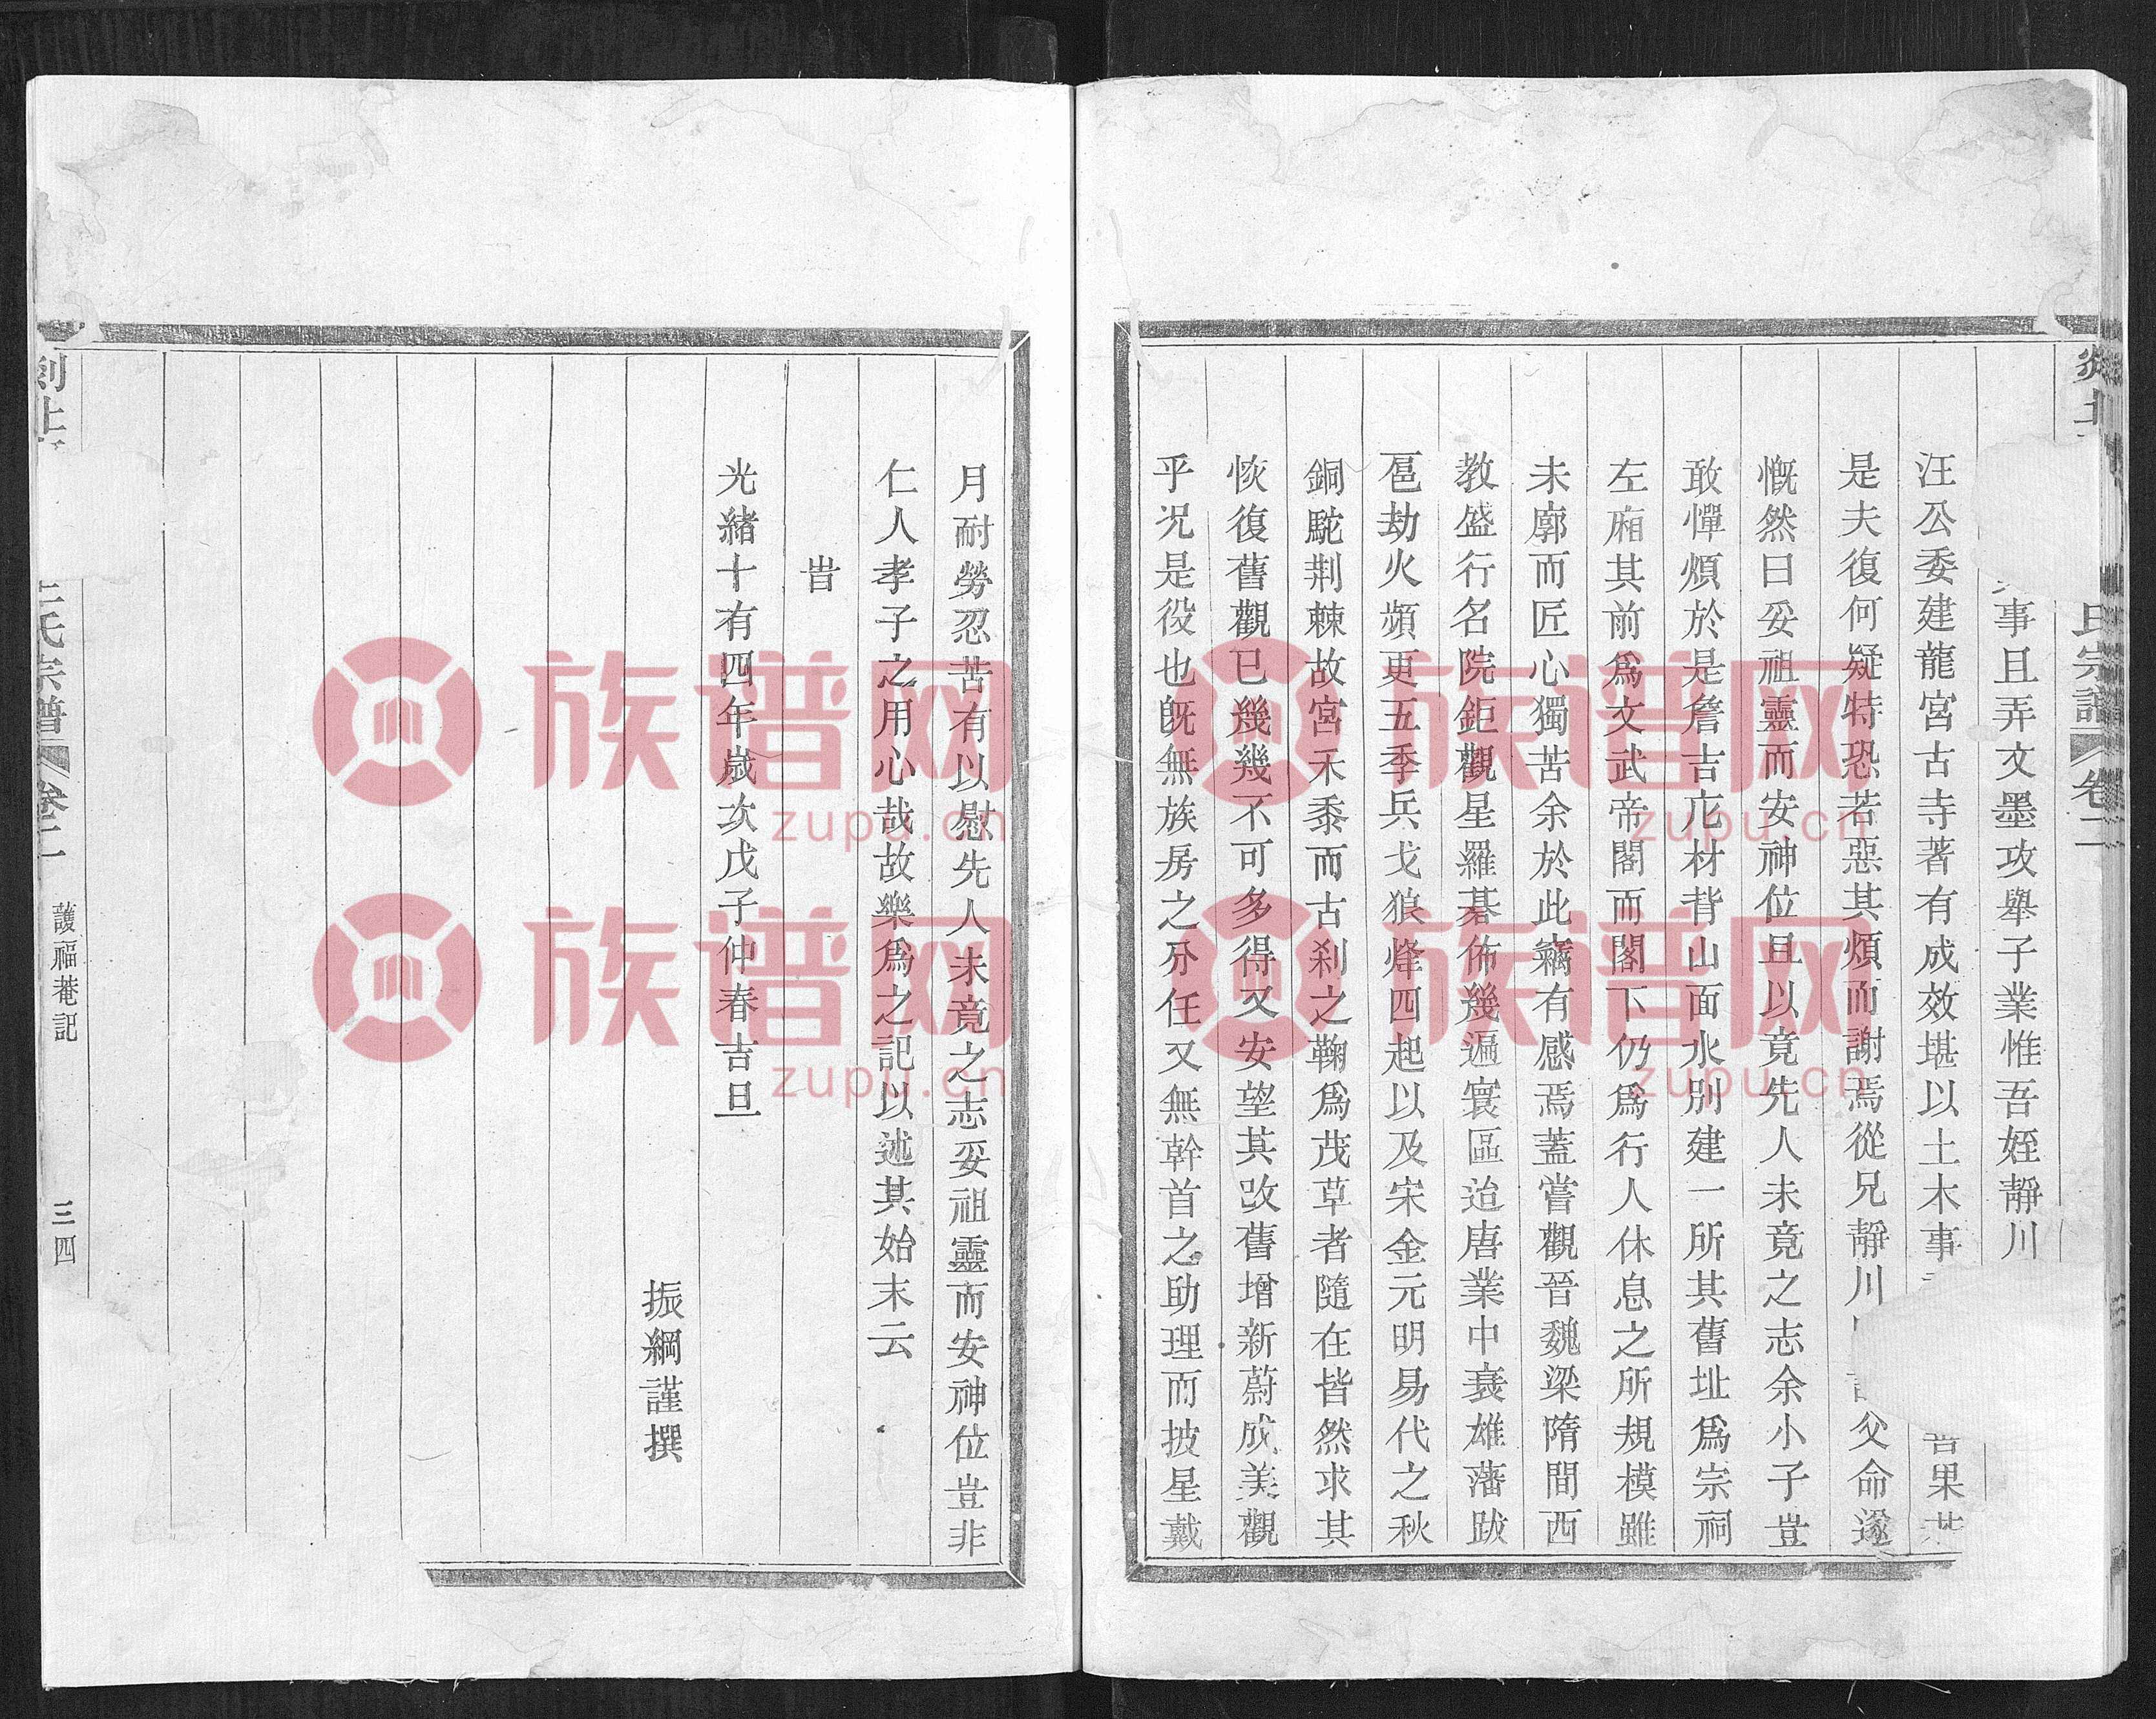 氏宗譜 卷二
事且弄文墨攻舉子業惟吾姪靜川
汪公委建龍宮古寺著有成效堪以土木事 果
是夫復何疑特恐若惡其煩而謝焉從兄靜川 父命遂
慨然曰妥祖靈而安神位且以竟先人未竟之志余小子豈
敢憚煩於是詹吉庀材背山面水別建一所其舊址爲宗祠
左廂其前爲文武帝閣而閣下仍爲行人休息之所規模雖
未廓而匠心獨苦余於此竊有感焉蓋嘗觀晉魏梁隋間西
教盛行名院鉅觀星羅碁佈幾遍寰區迨唐業中衰雄藩跋
扈劫火頻更五季兵戈狼烽四起以及宋金元明易代之秋
銅駝荆棘故宮禾黍而古刹之鞠爲茂草者隨在皆然求其
恢復舊觀已幾幾不可多得又安望其改舊增新蔚成美觀
乎況是役也旣無族房之分任又無幹首之助理而披星戴
月耐勞忍苦有以慰先人未竟之志妥祖靈而安神位豈非
仁人孝子之用心哉故樂爲之記以述其始末云
旹
光緒十有四年歲次戊子仲春吉旦
振綱謹撰
氏宗譜 卷二 護福菴記 三四
族谱网
zupu.cn
族谱网
zupu.cn
族谱网
zupu.cn
族谱网
zupu.cn